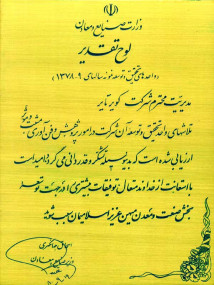 وزارت صنایع و معادن
لوح تقدیر
(واحدهای تحقیق و توسعه نمونه سالهای ۹-۱۳۷۸)
مدیریت محترم شرکت کویر تایر
تلاشهای واحد تحقیق و توسعه آن شرکت در امور پژوهش و فن‌آوری مثبت و ویژه
ارزیابی شده است که بدینوسیله تشکر و قدردانی می گردد. امید است
با استعانت از خداوند متعال توفیقات بیشتری در جهت توسعه
بخش صنعت و معدن میهن عزیز اسلامیمان نصیب شود
اسحاق جهانگیری
وزیر صنایع و معادن